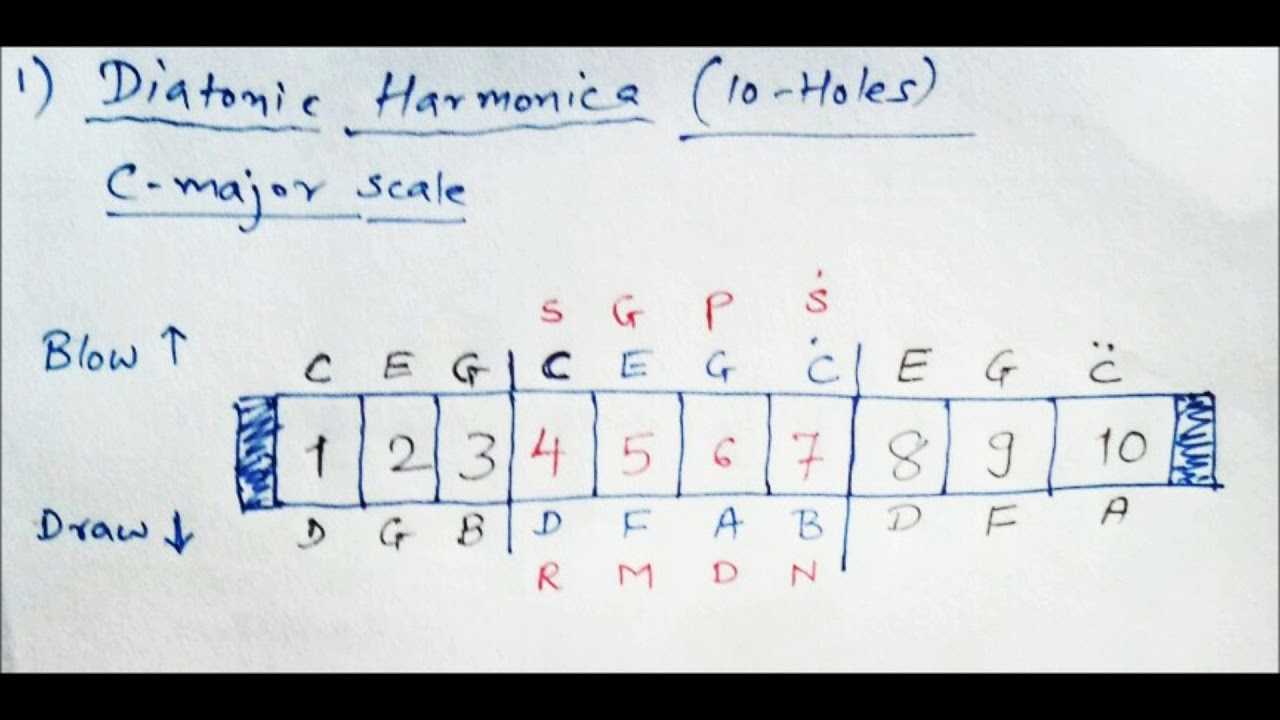 1) Diatonic Harmonica (10-Holes)
C-major scale
S G P Ṡ
Blow ↑ C E G C E G Ċ E G C̈
1 2 3 4 5 6 7 8 9 10
Draw ↓ D G B D F A B D F A
R M D N